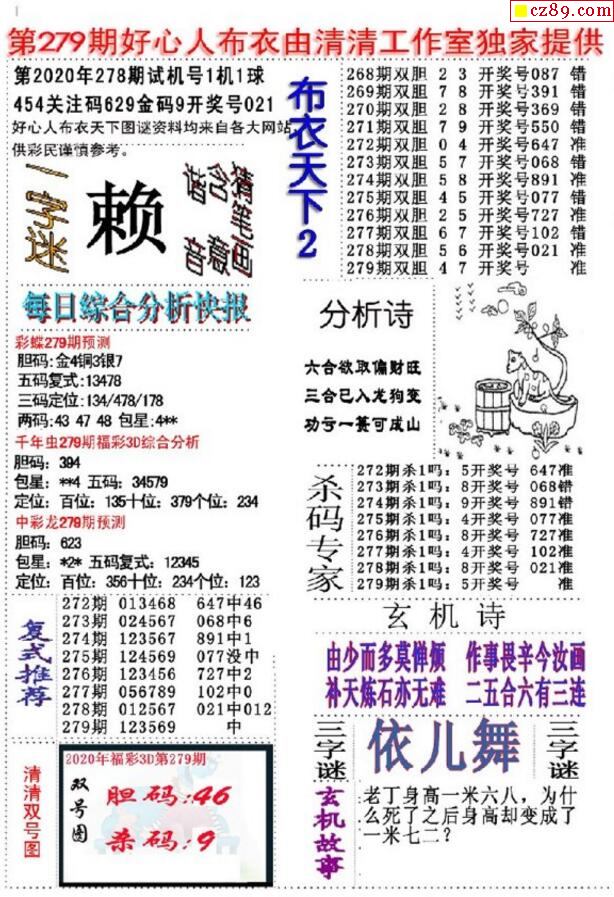 cz89.com
第279期好心人布衣由清清工作室独家提供
第2020年278期试机号1机1球
454关注码629金码9开奖号021
好心人布衣天下图谜资料均来自各大网站
供彩民谨慎参考。
一字迷
赖
谐含清笔画
音意
每日综合分析快报
彩蝶279期预测
胆码:金4铜3银7
五码复式:13478
三码定位:134/478/178
两码:43 47 48 包星:4**
千年虫279期福彩3D综合分析
胆码：394
包星：**4 五码：34579
定位：百位：135十位：379个位：234
中彩龙279期预测
胆码：623
包星：*2* 五码复式：12345
定位：百位：356十位：234个位：123
复式推荐
272期 013468 647中46
273期 024567 068中6
274期 123567 891中1
275期 124569 077没中
276期 123456 727中2
277期 056789 102中0
278期 012567 021中012
279期 123569 中
清清双号图
2020年福彩3D第279期
双号图
胆码:46
杀码:9
布衣天下2
268期双胆 2 3 开奖号087 错
269期双胆 7 8 开奖号391 错
270期双胆 2 8 开奖号369 错
271期双胆 7 9 开奖号550 错
272期双胆 0 4 开奖号647 准
273期双胆 5 7 开奖号068 错
274期双胆 5 8 开奖号891 准
275期双胆 4 5 开奖号077 错
276期双胆 2 5 开奖号727 准
277期双胆 6 7 开奖号102 错
278期双胆 5 6 开奖号021 准
279期双胆 4 7 开奖号 准
分析诗
六合欲取偏财旺
三合已入龙狗变
功亏一篑可成山
杀码专家
272期杀1吗：5开奖号 647准
273期杀1吗：8开奖号 068错
274期杀1吗：9开奖号 891错
275期杀1吗：4开奖号 077准
276期杀1吗：8开奖号 727准
277期杀1吗：4开奖号 102准
278期杀1吗：8开奖号 021准
279期杀1吗：5开奖号 准
玄机诗
由少而多莫惮烦 作事畏辛今汝画
补天炼石亦无难 二五合六有三连
三字谜
依儿舞
三字谜
玄机故事
老丁身高一米六八，为什
么死了之后身高却变成了
一米七二？